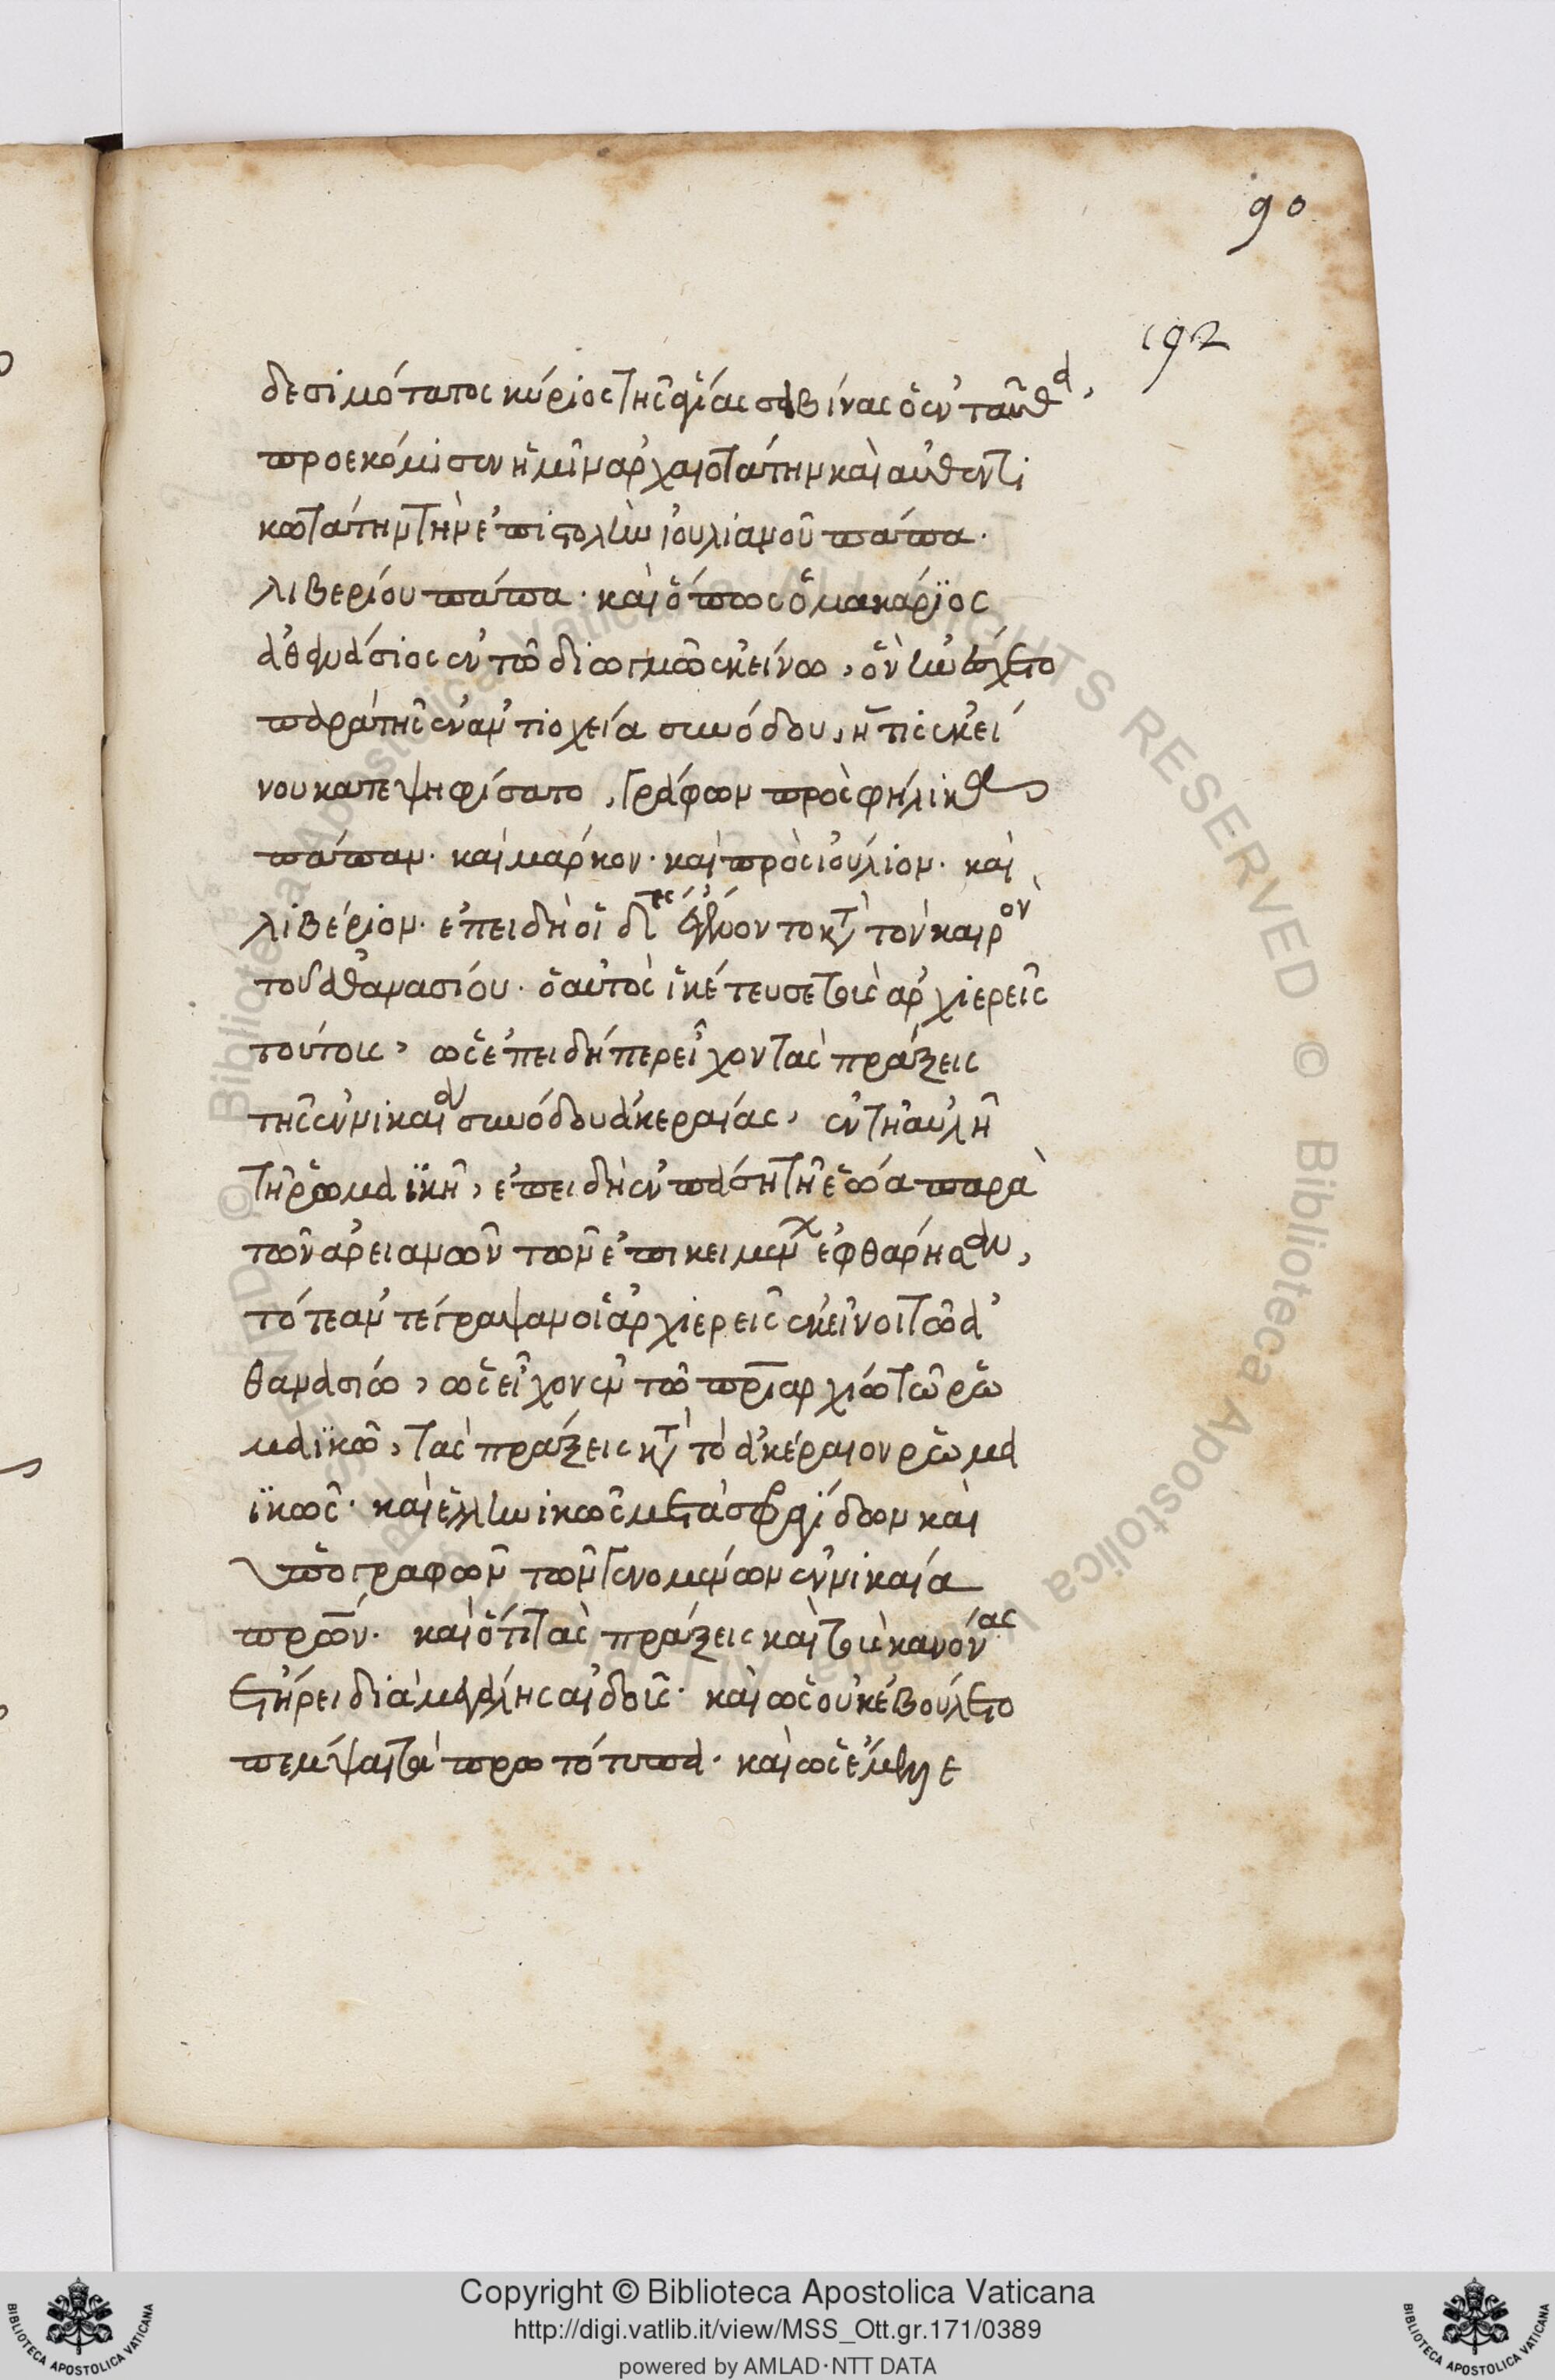 90
192
δεσιμότατος κύριος τῆς ἁγίας σαβίνας ὁ ἐνταῦθα,
προεκόμισεν ἡμῖν ἀρχαιοτάτην καὶ αὐθεντι
κωτάτην τὴν ἐπιστολὴν ἰουλιανοῦ πάπα.
λιβερίου πάπα. καὶ ὅπως ὁ μακάριος
ἀθανάσιος ἐν τῶ διωγμῶ ἐκείνω, ὃν ἠνείχετο
παρὰ τῆς ἐν ἀντιοχεία συνόδου, ἥτις ἐκεί
νου κατεψηφίσατο, γράφων πρὸς φήλικα
πάπαν. καὶ μάρκον. καὶ πρὸς ἰούλιον. καὶ
λιβέριον. ἐπειδὴ οἱ δ τες ἐγένοντο κατὰ τὸν καιρὸν
τοῦ ἀθανασίου. ὁ αὐτὸς ἱκέτευσε τοὺς ἀρχιερεῖς
τούτους, ὡς ἐπειδήπερ εἶχον τὰς πράξεις
τῆς ἐν νικαία συνόδου ἀκεραίας, ἐν τῆ αὐλῆ
τῆ ῥωμαϊκῆ, ἐπειδὴ ἐν πάση τῆ ἑώα παρὰ
τῶν ἀρειανῶν τῶν ἐπικειμένων ἐφθάρησαν,
τότε ἀντέγραψαν οἱ ἀρχιερεῖς ἐκεῖνοι τῶ ἀ
θανασίω, ὡς εἶχον ἐν τῶ πατριαρχίω τῶ ῥω
μαϊκῶ, τὰς πράξεις κατὰ τὸ ἀκέραιον ῥωμα
ϊκῶς. καὶ ἑλληνικῶς μετὰ σφραγίδων καὶ
ὑπογραφῶν τῶν γενομένων ἐν νικαία
πατέρων. καὶ ὅτι τὰς πράξεις καὶ τοὺς κανόνας
ἐτήρει διὰ μεγάλης αἰδοῦς. καὶ ὡς οὐκ ἐβούλετο
πέμψαι τὰ πρωτότυπα. καὶ ὡς ἔμελλε
Copyright © Biblioteca Apostolica Vaticana
http://digi.vatlib.it/view/MSS_Ott.gr.171/0389
powered by AMLAD·NTT DATA